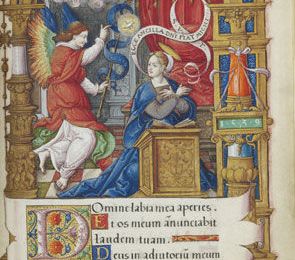 ECCE ANCILLA DNI FIAT MICHI
1539
Domine labia mea aperies.
Et os meum añunciabit
laudem tuam.
Deus in adiutoriũ meum